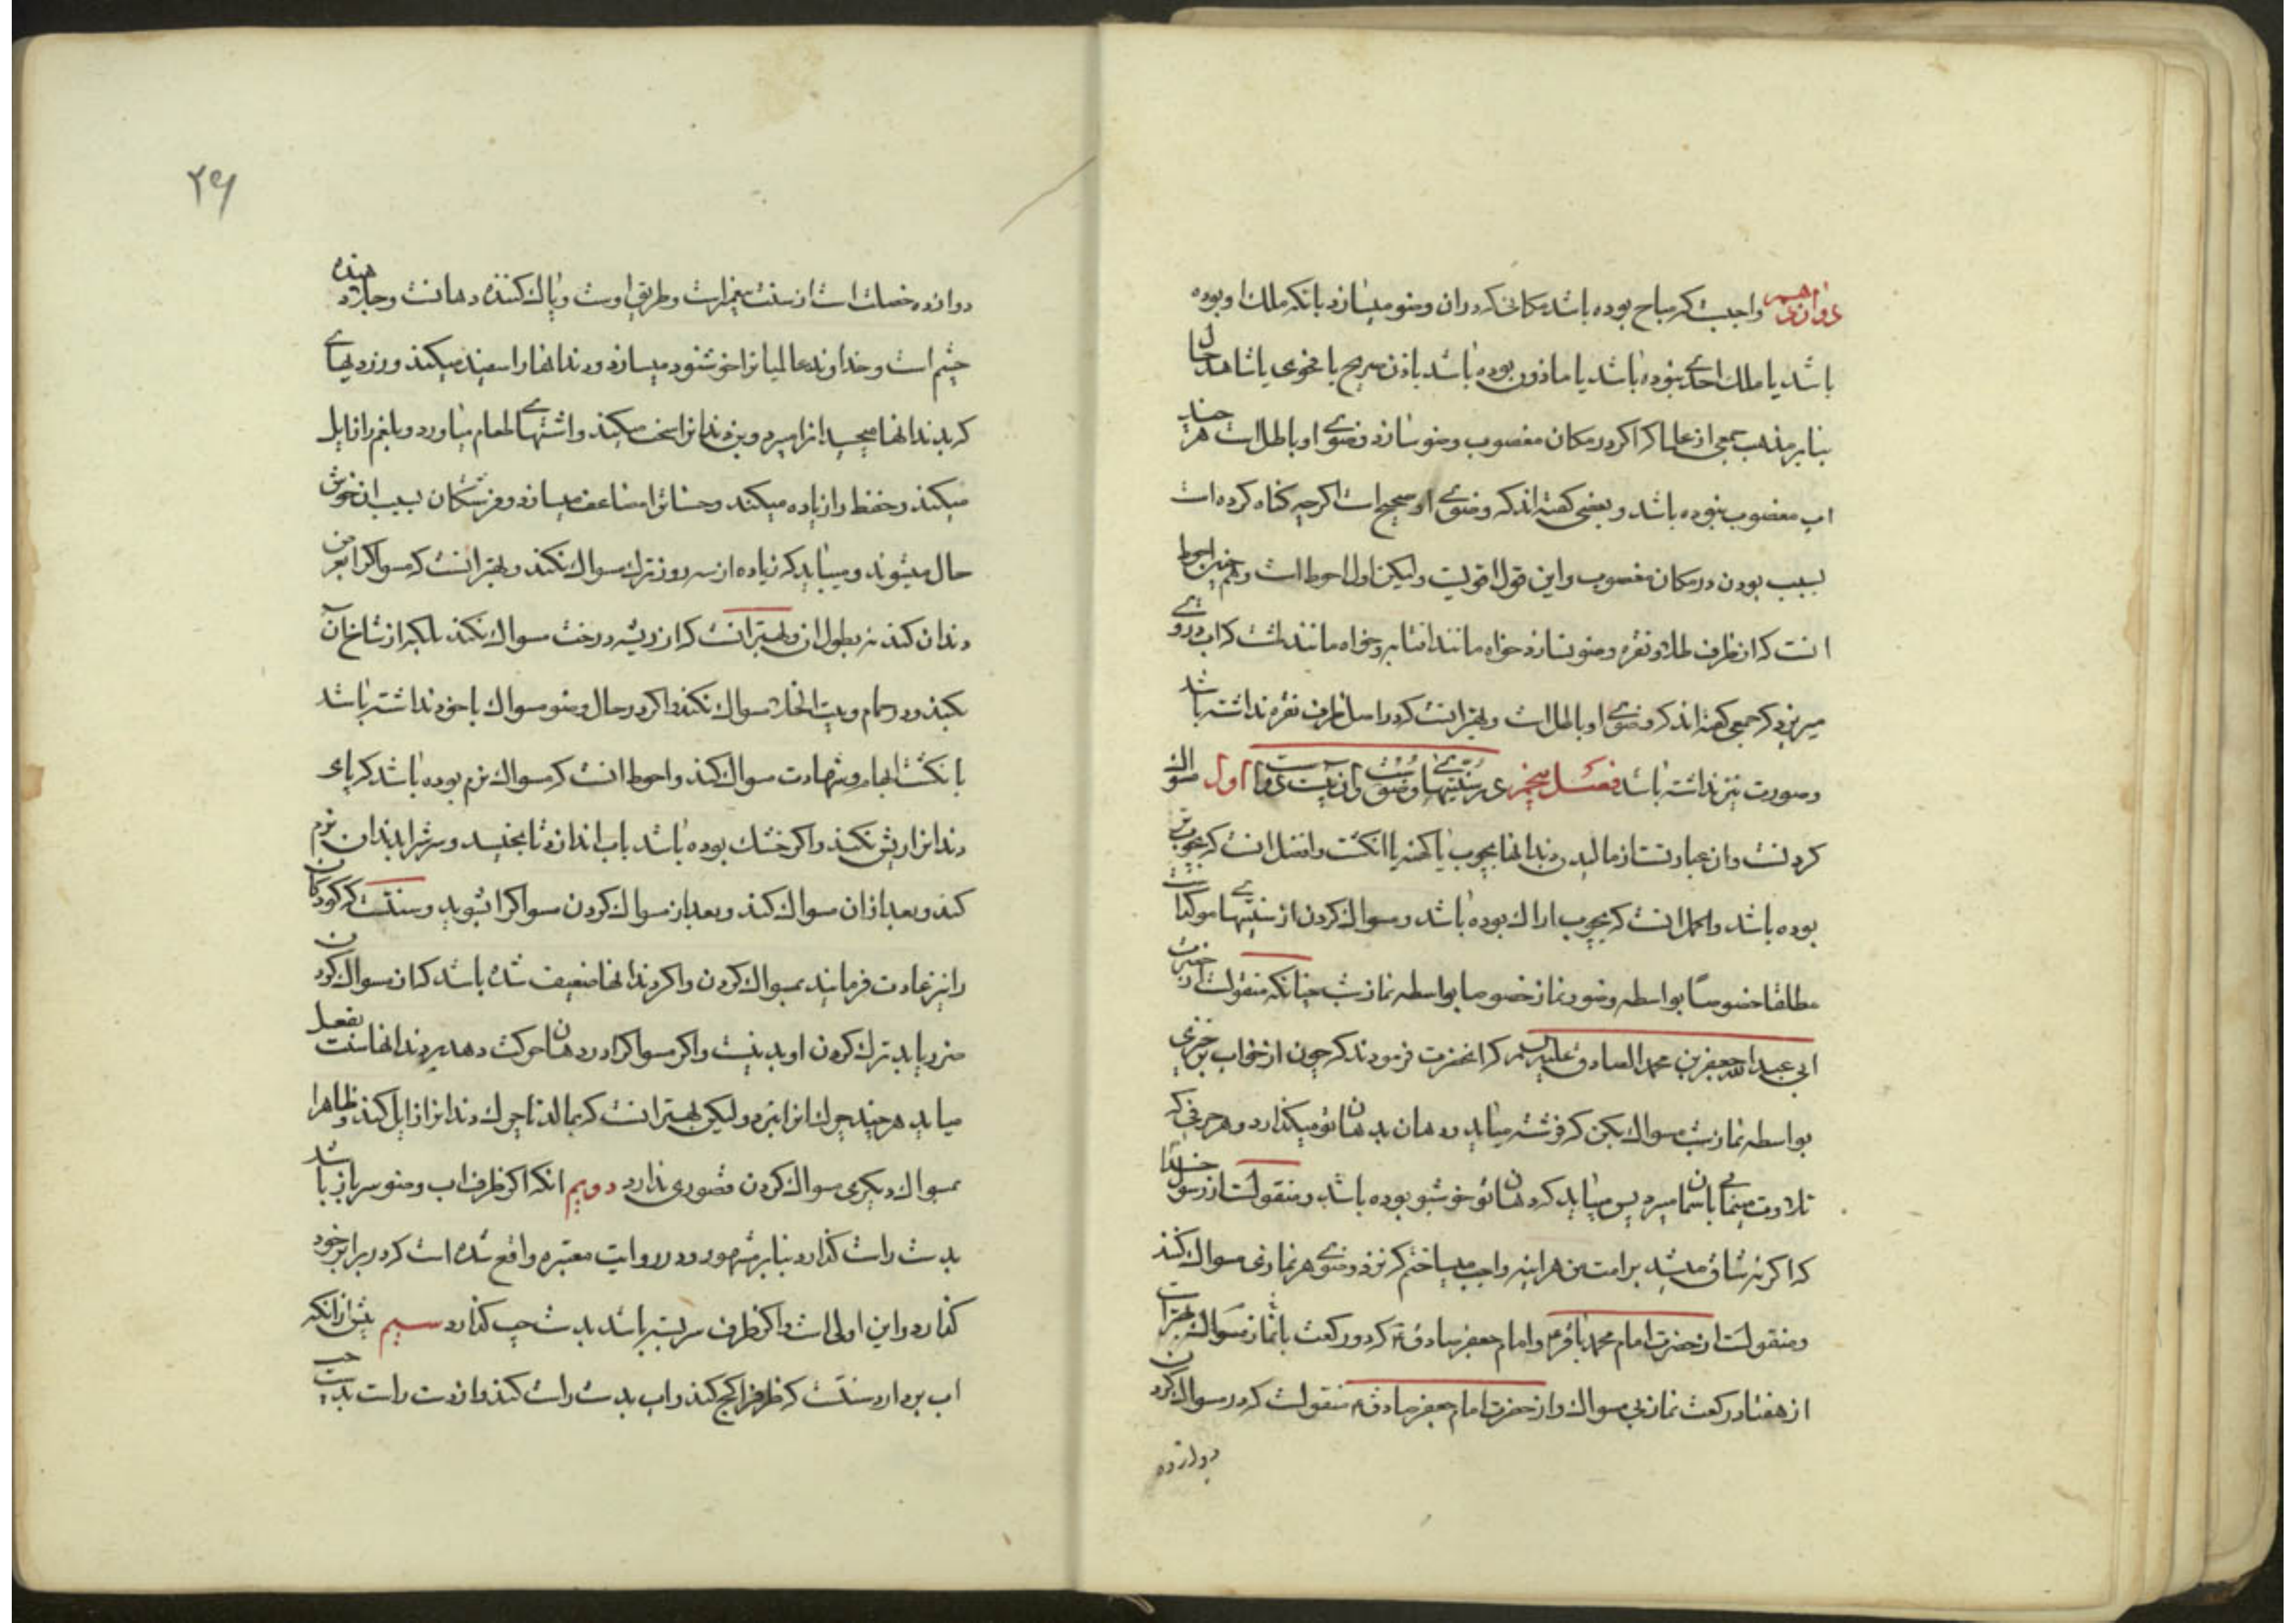 دوازدهم واجبست که مباح بوده باشد مکانی که دران وضو میسازد بانکه ملک او بوده
باشد یا ملک احدی نبوده باشد یا ماذون بوده باشد باذن صریح یا فحوی یا شاهد حال
بنابر مذهب جمعی از علما که اگر در مکان مغصوب وضو سازد وضوی او باطل است هر چند
اب مغصوب نبوده باشد و بعضی کفته اند که وضوی او صحیح است اکرچه کناه کرده است
بسبب بودن در مکان مغصوب و این قول اقویست ولیکن اول احوط است و همچنین احوط
انست که از ظرف طلا و نقره وضو نسازد خواه مانند افتابه و خواه مانند لشت که اب در وی
میریزد که جمعی کفته اند که وضوی او باطل است و بهتر انست که در اصل ظرف نقره نداشته باشد
و صورت نیز نداشته باشد فصل پنجم در سنتیهای وضوست وان بیست و دو اول مسواک
کردنست وان عبارتست از مالیدن دندانها بچوب یا کهنه یا انکشت و افضل انست که بچوب
بوده باشد و اکمل انست که بچوب اراک بوده باشد و مسواک کردن از سنتیهای موکد است
مطلقا خصوصا بواسطه وضو و نماز خصوصا بواسطه نماز شب چنانکه منقولست از حضرت
ابی عبدالله جعفر بن محمد الصادق علیه السلم که انحضرت فرمودند که چون از خواب برخیزی
بواسطه نماز شب مسواک بکن که فرشته میاید و دهان بدهان تو میکذارد و هر حرفی که
تلاوت مینمایی باسمان میبرد پس میباید که دهان تو خوشبو بوده باشد و منقولست از رسول خدا
که اکر نه شاق میشد بر امت من هراینه واجب میساختم که نزد وضوی هر نمازی مسواک کنند
و منقولست از حضرت امام محمد باقر و امام جعفر صادق که دو رکعت با نماز مسواک بهتر است
از هفتاد رکعت نماز بی مسواک و از حضرت امام جعفر صادق منقولست که در مسواک کردن
دوازده
۲۶
دوازده خصلت است از سنت پیغمبرانست و طریق اوست و پاک کننده دهانست و جلا دهنده
چشم است و خداوند عالمیانرا خوشنود میسازد و دندانها را سفید میکند و زردیهای
که بدندانها میچسبد انرا میبرد و بن دندانرا سخت میکند و اشتهای طعام میاورد و بلغم را زایل
میکند و حفظ را زیاده میکند و حسناترا مضاعف میسازد و فرشتکان بسبب ان خوش
حال میشوند و میباید که زیاده از سه روز ترک مسواک نکند و بهتر انست که مسواکرا بعرض
دندان کند نه بطول ان و بهتر انست که از ریشه درخت مسواک نکند بلکه از شاخ ان
بکند و در حمام و بیت الخلا مسواک نکند و اکر در حال وضو مسواک با خود نداشته باشد
بانکشت ابهام و شهادت مسواک کند و احوط انست که مسواک نرم بوده باشد که پای
دندانرا ریش نکند و اکر خشک بوده باشد باب اندازد تا بخیسد و سرش را بدندان نرم
کند و بعد ازان مسواک کند و بعد از مسواک کردن مسواکرا بشوید و سنتست که کودکان
را نیز عادت فرمایند بمسواک کردن و اکر دندانها ضعیف شده باشد که از مسواک کردن
ضرر یابد ترک کردن او بد نیست و اکر مسواکرا در دهان حرکت دهد بر دندانها سنت بفعل
میاید هر چند چرک انرا نبرد ولیکن بهتر انست که بمالد تا چرک دندانرا زایل کند و ظاهرا
بمسواک دیکری مسواک کردن قصوری ندارد دویم انکه اکر ظرف اب وضو سرباز باشد
بدست راست کذارد بنابر مشهور و در روایت معتبره واقع شده است که در برابر خود
کذارد و این اولی است و اکر ظرف سر بسته باشد بدست چپ کذارد سیم پیش از انکه
اب بردارد سنتست که ظرفرا کج کند و اب بدست راست کند و از دست راست بدست چپ